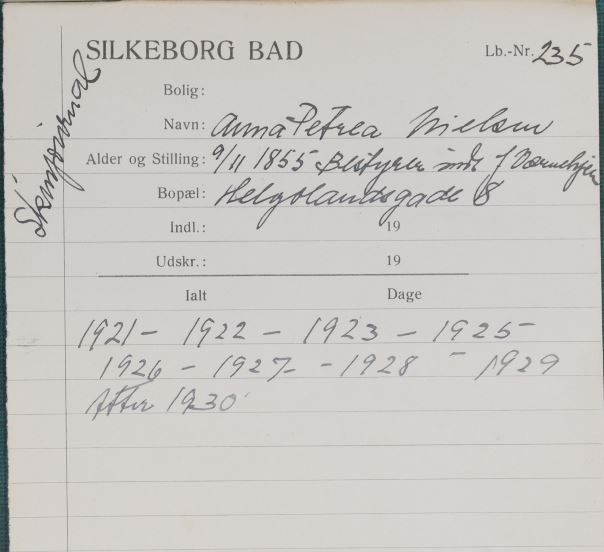 SILKEBORG BAD
Lb.-Nr. 235
Bolig:
Navn: Anna Petrea Nielsen
Alder og Stilling: 9/11 1855 Bestyrer
Bopæl: Helgolandsgade 8
Indl.: 19
Udskr.: 19
Ialt Dage
1921 - 1922 - 1923 - 1925 -
1926 - 1927 - - 1928 - 1929
Atter 1930